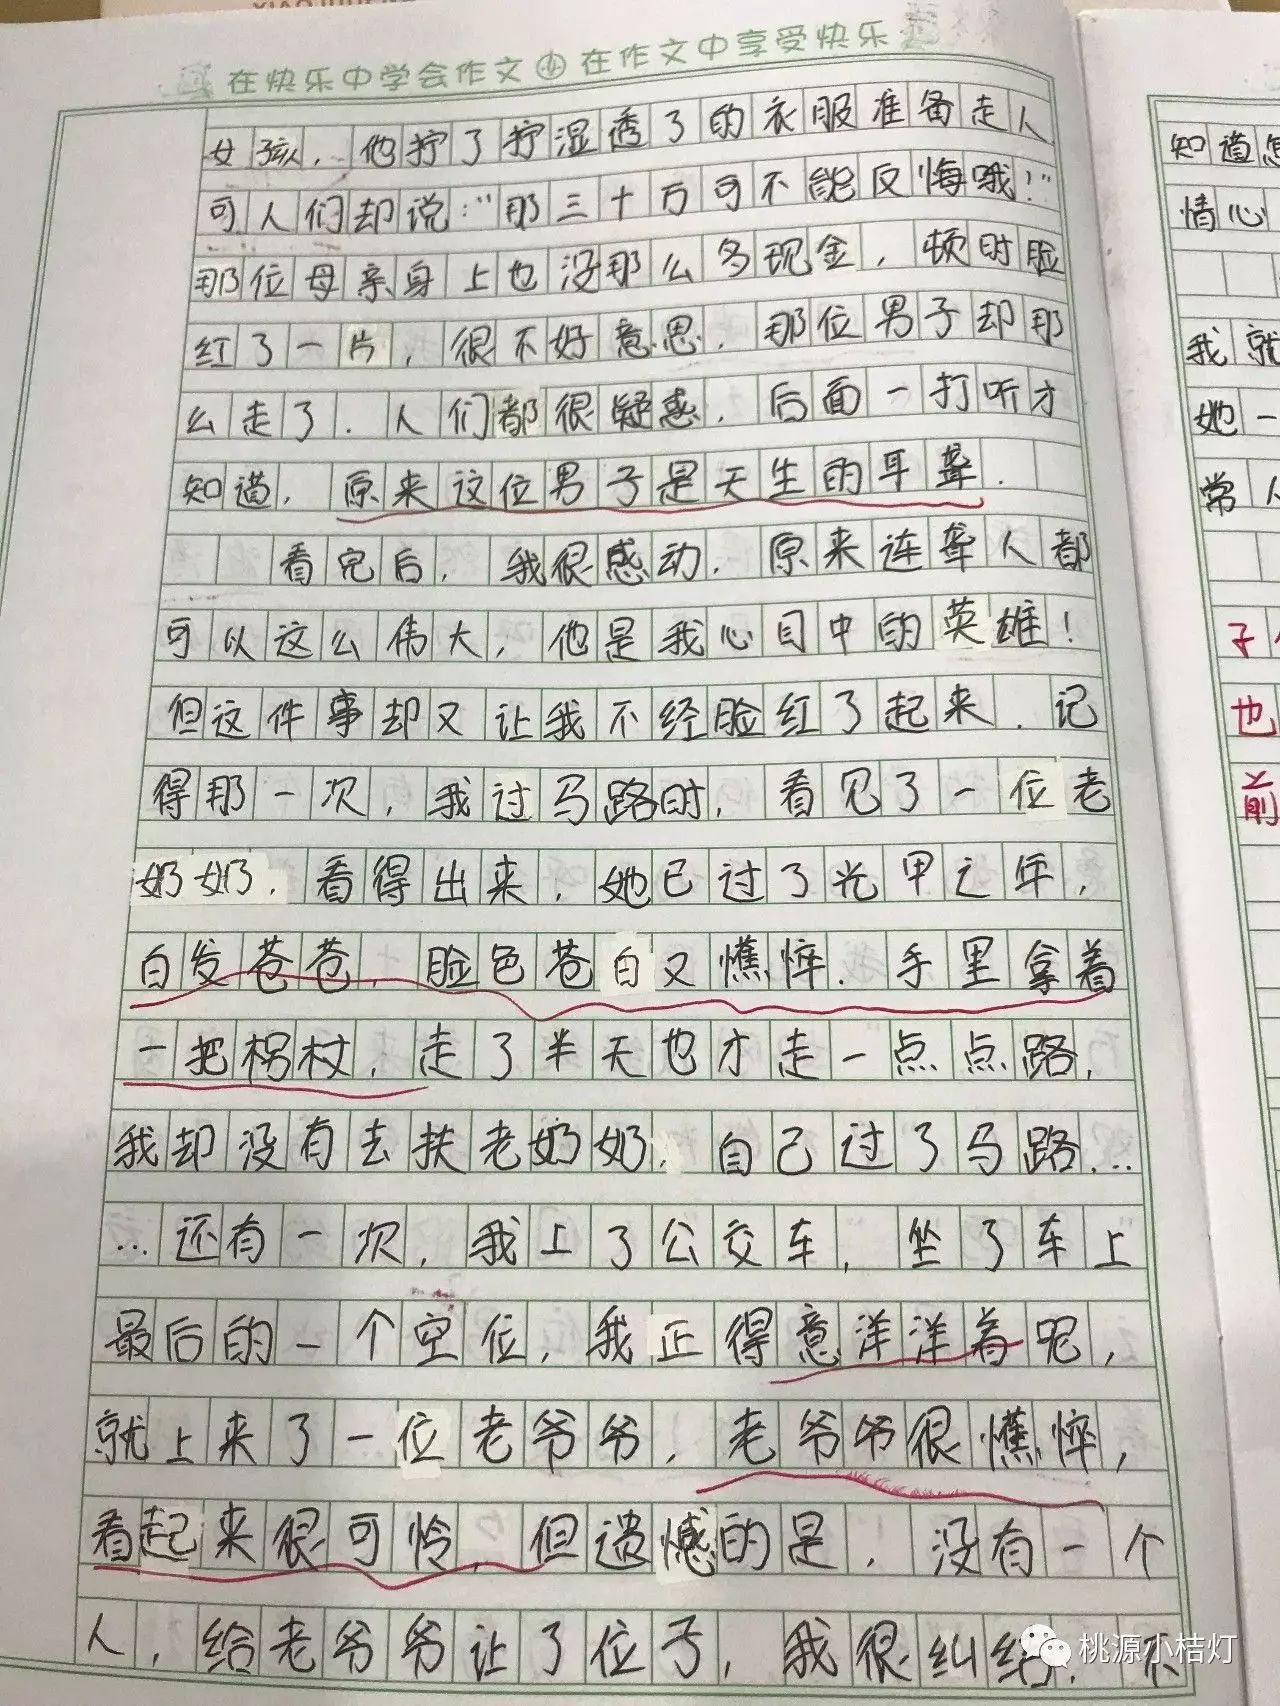 在快乐中学会作文 在作文中享受快乐
女孩，他拧了拧湿透了的衣服准备走人
可人们却说：“那三十万可不能反悔哦！”
那位母亲身上也没那么多现金，顿时脸
红了一片，很不好意思．那位男子却那
么走了．人们都很疑惑．后面一打听才
知道，原来这位男子是天生的耳聋．
看完后，我很感动．原来连聋人都
可以这么伟大，他是我心目中的英雄！
但这件事却又让我不经脸红了起来．记
得那一次，我过马路时，看见了一位老
奶奶．看得出来，她已过了光甲之年，
白发苍苍，脸色苍白又憔悴．手里拿着
一把柺杖，走了半天也才走一点点路，
我却没有去扶老奶奶，自己过了马路…
…还有一次，我上了公交车，坐了车上
最后的一个空位，我正得意洋洋着呢，
就上来了一位老爷爷，老爷爷很憔悴，
看起来很可怜，但遗憾的是，没有一个
人，给老爷爷让了位子，我很纠结．不
知道怎
情心
我就
她一
常人
子
也
前
桃源小桔灯